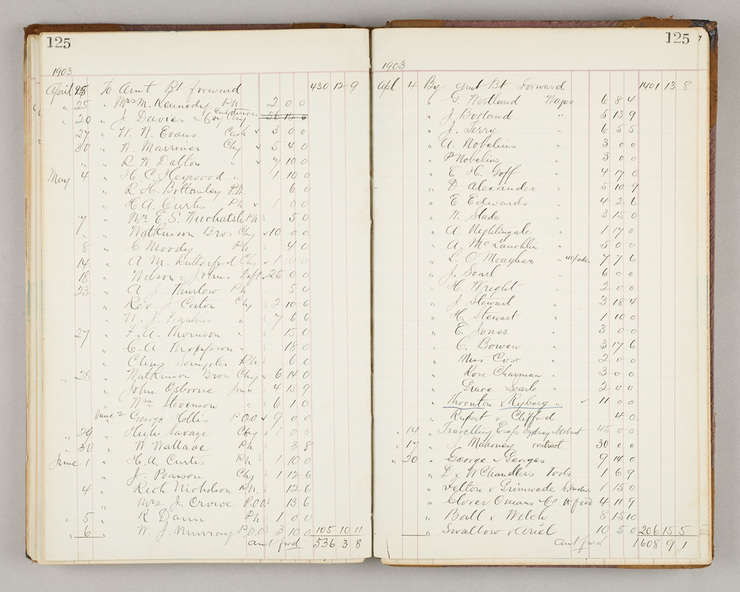 125
1903
April 25 To Amt Bt forward 430 12 9
" 25 " Mrs M. Kennedy P.N. 2 0 0
" 20 " J Davies
" 27 " W. N. Evans Cash 3 0 0
" 30 " W. Marriner Chq 5 4 0
" " R W Dalton " 7 10 0
May 4 " H. C. Heywood " 1 10 0
" R. H. Bottomley P.N. 6 0
" H. A. Curtis P.N. 1 0 0
" 7 " Mr E. S. P.N. 5 0
" Watkinson Bros Chq 10 0 0
" 8 " C Moody P.N. 4 0
" 14 " A M Rutherford Chq 1 0 0
" 18 " Wilson & Johns 26 0 0
" 23 " A J P.N. 5 0
" Rev J Chq 2 10 6
" W. J. " 7 6 0
" 27 " F. A. Thomson " 15 0
" C. A. Thompson " 18 0
" P.N. 6 0
" 28 " Watkinson Bros Chq 6 14 0
" John Osborne 4 13 9
" Wm Stevenson 6 1 0
June 2 George Hollis P.O.O 9 0 0
" 29 " Hugh Savage Chq 1 0 0
" 30 " W Wallace P.N. 3 8
June 1 " H. A. Curtis P.N. 1 10 0
" J. Ponson Chq 1 12 6
" 4 " Rich Nicholson P.N. 12 6
" Mrs J. Crowe P.O.O. 13 6
" 5 " R Dann P.N. 1 0 0
" 6 " W. J. Murray P.O.O 3 10 0 105 10 11
amt fwd 536 3 8
125
1903
Apl 4 By Amt Bt Forward 1401 13 8
" G. Nortlund Wages 6 8 4
" J Borland " 5 13 9
" J. Terry " 6 5 5
" A. Nobelius " 3 0 0
" P Nobelius " 3 0 0
" E H. Goff " 4 17 0
" D Alexander " 5 10 9
" E Edwards " 4 2 6
" N. Slade " 3 15 0
" A Nightingale " 1 7 0
" A. McLaughlin " 5 0 0
" L O'Meagher " 7 7 6
" J. " 6 0 0
" H. Wright " 2 0 0
" J Stewart " 3 18 4
" H. Stewart " 1 10 0
" E Jones " 3 0 0
" C. Bowen " 3 17 6
" Miss Cox " 2 0 0
" Ron Chapman " 3 0 0
" Grace Searle " 2 0 0
" Thornton & Ryberg " 11 0 0
" Rupert & Clifford 4 0
" 14 " Travelling Exps Sydney 45 0 0
" 17 " J. Mahoney contract 30 0 0
" 20 " George & George 9 14 0
" L & W Chandler Tools 1 6 9
" Felton & Grimwade 1 15 0
" Glover Onians & Co 4 11 9
" Ball & Welch 8 15 10
" Swallow & Ariel 10 5 0 206 15 5
amt fwd 1608 9 1